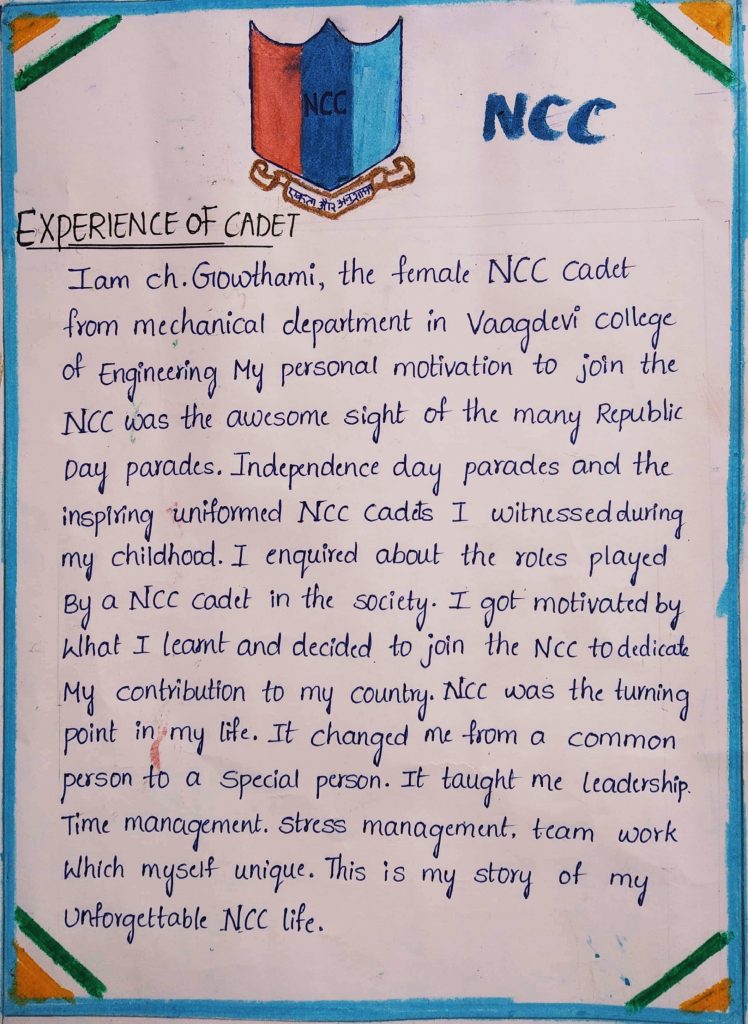 NCC
NCC
एकता और अनुशासन
EXPERIENCE OF CADET
I am ch. Gowthami, the female NCC cadet
from mechanical department in Vaagdevi college
of Engineering My personal motivation to join the
NCC was the awesome sight of the many Republic
Day parades. Independence day parades and the
inspiring uniformed NCC cadets I witnessed during
my childhood. I enquired about the roles played
By a NCC cadet in the society. I got motivated by
What I learnt and decided to join the NCC to dedicate
My contribution to my country. NCC was the turning
point in my life. It changed me from a common
person to a special person. It taught me leadership.
Time management. stress management. team work
Which myself unique. This is my story of my
Unforgettable NCC life.